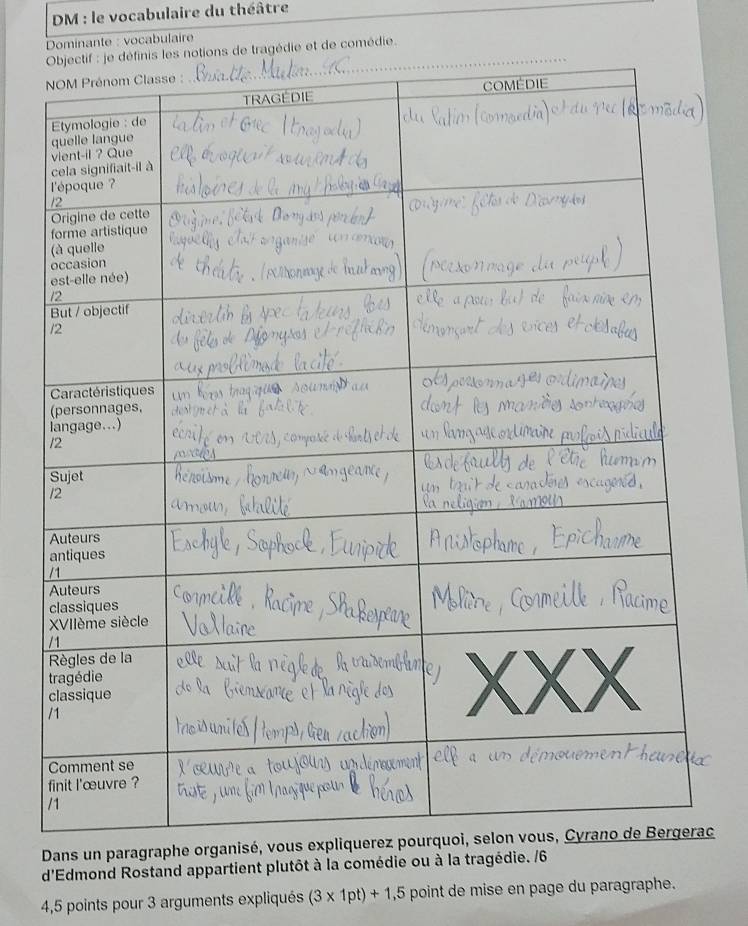 DM : le vocabulaire du théâtre
Dominante : vocabulaire
Objectif : je définis les notions de tragédie et de comédie.
NOM Prénom Classe :
TRAGÉDIE
COMÉDIE
Etymologie : de
quelle langue
vient-il ? Que
cela signifiait-il à
l'époque ?
/2
Latin et Grec (tragodia)
elle évoquait souvent des
histoires de la mythologie
du latin (comoedia) et du grec (kômôdia)
Origine de cette
forme artistique
(à quelle
occasion
est-elle née)
/2
Origine: fête de pendant
laquelle était organisé un concours
de théâtre. (personnage de haut rang)
origine: fêtes de
(personnage du peuple)
But / objectif
/2
divertir les spectateurs lors
des fêtes de et réfléchir
aux problèmes de la cité.
elle a pour but de faire rire en
dénonçant des vices et des abus
Caractéristiques
(personnages,
langage...)
/2
un héros tragique soumis au
destin et à la fatalité.
écrite en vers, composée de chants et de
paroles
des personnages ordinaires
dont les manières sont
un langage ordinaire parfois ridicule
Sujet
/2
héroïsme, honneur, vangeance,
amour, fatalité
les défauts de l'être humain
un trait de caractères exagérés.
la religion, l'amour
Auteurs
antiques
/1
Eschyle, Sophocle, Euripide
Aristophane, Epicharme
Auteurs
classiques
XVIIème siècle
/1
Corneille, Racine, Shakespeare
Voltaire
Molière, Corneille, Racine
Règles de la
tragédie
classique
/1
elle suit la règle de la vraisemblance,
de la bienséance et la règle des
trois unités (temps, lieu, action)
XXX
Comment se
finit l'œuvre ?
/1
l'oeuvre a toujours un dénouement
triste, une fin tragique pour le héros
elle a un dénouement heureux
Dans un paragraphe organisé, vous expliquerez pourquoi, selon vous, Cyrano de Bergerac
d'Edmond Rostand appartient plutôt à la comédie ou à la tragédie. /6
4,5 points pour 3 arguments expliqués (3 x 1pt) + 1,5 point de mise en page du paragraphe.